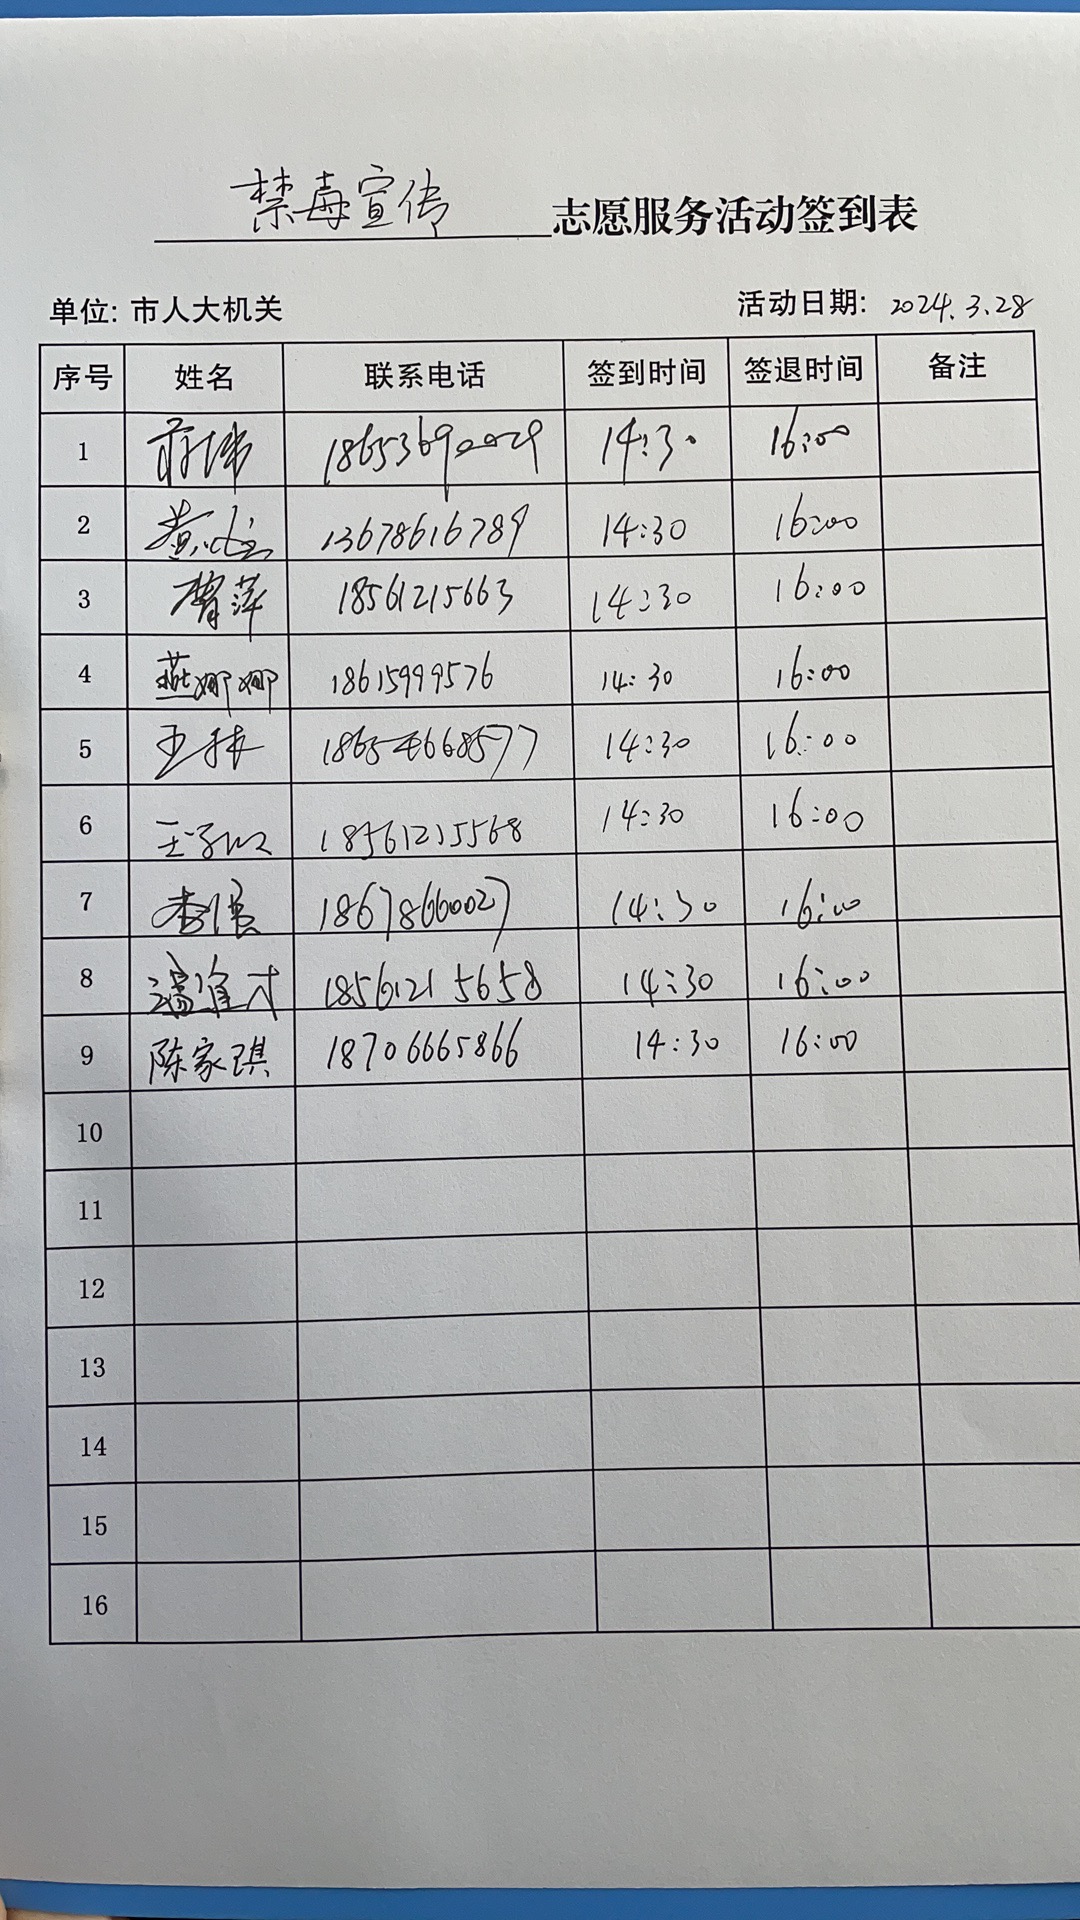 禁毒宣传 志愿服务活动签到表
单位: 市人大机关 活动日期: 2024.3.28
序号 姓名 联系电话 签到时间 签退时间 备注
1 14:30 16:00
2 13678616789 14:30 16:00
3 曹萍 18561215663 14:30 16:00
4 燕娜娜 18615999576 14:30 16:00
5 14:30 16:00
6 18561215568 14:30 16:00
7 18678660027 14:30 16:00
8 18561215658 14:30 16:00
9 陈家琪 18706665866 14:30 16:00
10
11
12
13
14
15
16